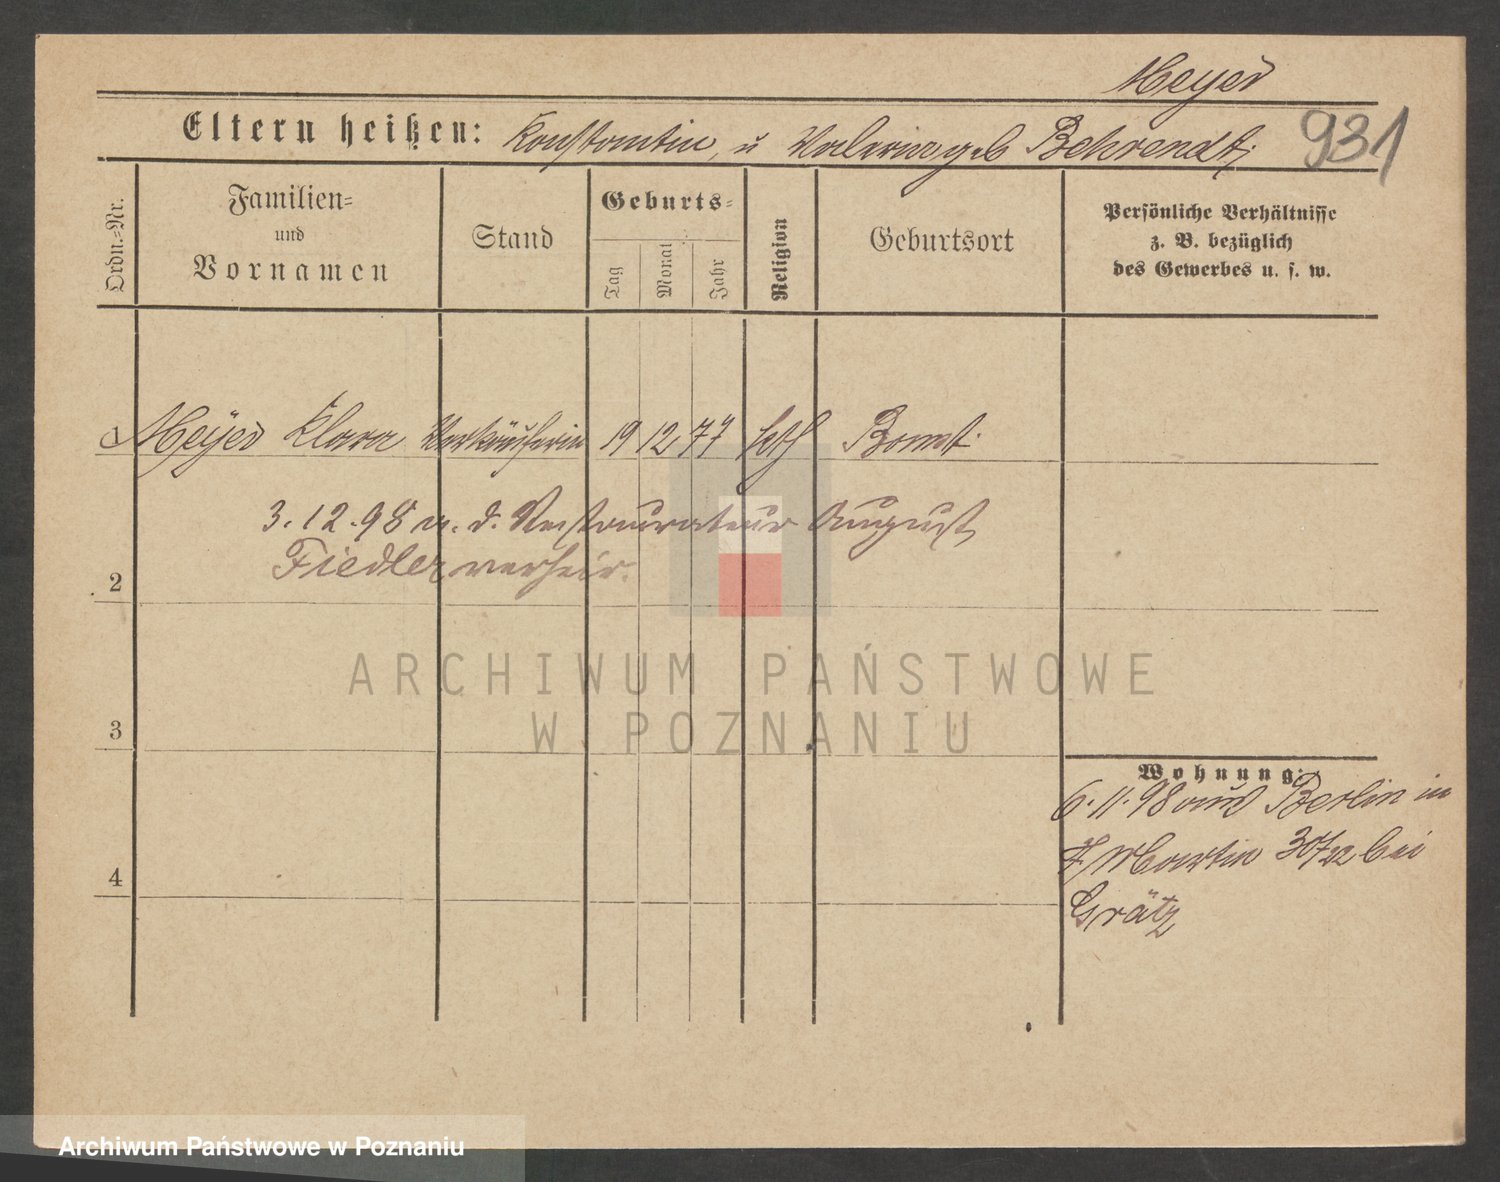 Meyer
Eltern heißen: Konstantin, u Valeria geb Behrendt.
931
Ordn.=Nr.
Familien=
und
Vornamen
Stand
Geburts=
Tag
Monat
Jahr
Religion
Geburtsort
Persönliche Verhältnisse
z. B. bezüglich
des Gewerbes u. s. w.
1 Meyer Klara Verkäuferin 19 12 77 kth Bomst.
3.12.98 m. d. Restaurateur August
Fiedler verheir.
2
3
4
Wohnung:
6.11.98 aus Berlin in
St Martin 30/32 bei
Grätz
ARCHIWUM PAŃSTWOWE
W POZNANIU
Archiwum Państwowe w Poznaniu